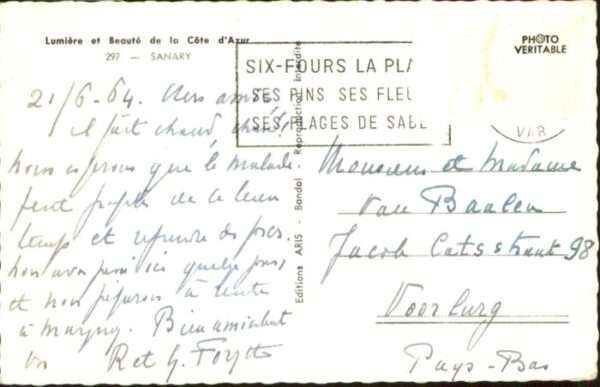 Lumière et Beauté de la Côte d'Azur
297 — SANARY
21/6-64. Chers amis,
il fait chaud, chaud!
Nous espérons que le malade
peut profiter de ce beau
temps et reprendre des forces.
Nous avons passé ici quelques jours
et nous
à Bien amicalement
R et G.
Editions ARIS - Bandol - Reproduction Interdite
SIX-FOURS LA PLA
SES PINS SES FLEU
SES PLAGES DE SABL
PHOTO
VERITABLE
VAR
Monsieur et Madame
Van Baalen
Jacob Catsstraat 98
Voorburg
Pays-Bas